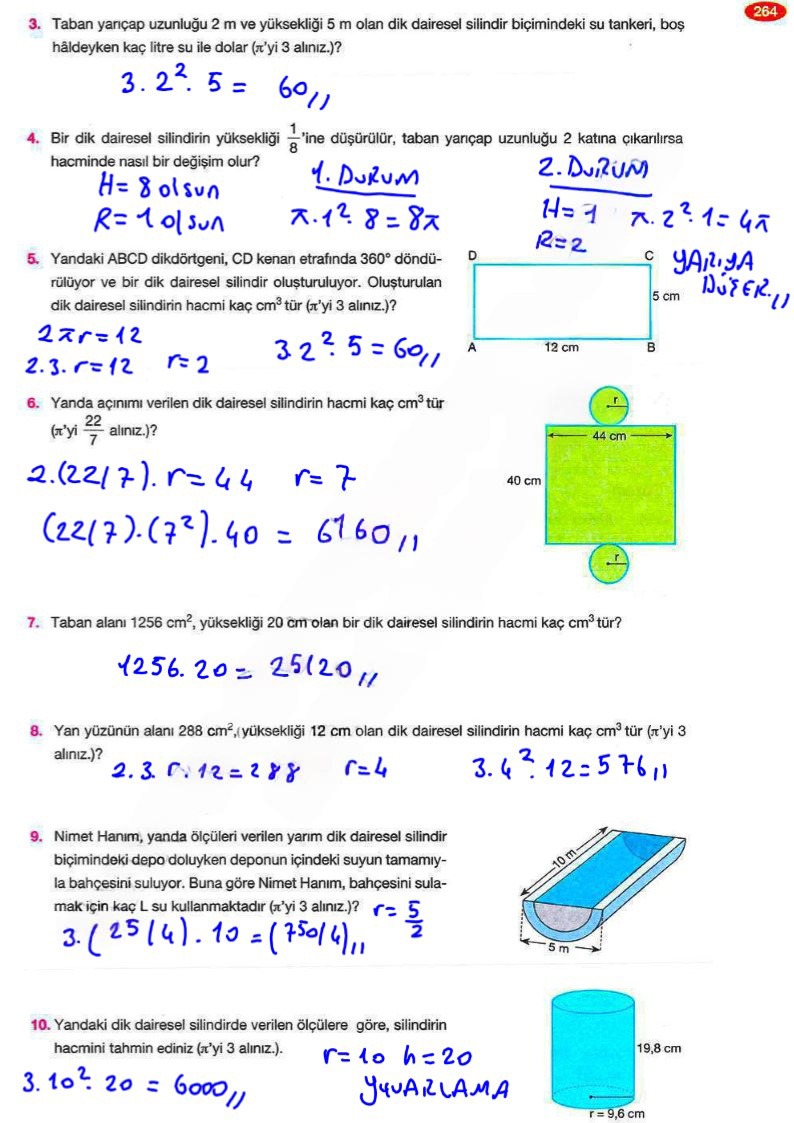 264
3. Taban yarıçap uzunluğu 2 m ve yüksekliği 5 m olan dik dairesel silindir biçimindeki su tankeri, boş
hâldeyken kaç litre su ile dolar (π'yi 3 alınız.)?
3. 2². 5 = 60,,
4. Bir dik dairesel silindirin yüksekliği 1/8 'ine düşürülür, taban yarıçap uzunluğu 2 katına çıkarılırsa
hacminde nasıl bir değişim olur?
H = 8 olsun
R = 1 olsun
1. DURUM
π.1². 8 = 8π
2. DURUM
H = 1 π. 2². 1 = 4π
R = 2
YARIYA
DÜŞER.,,
5. Yandaki ABCD dikdörtgeni, CD kenarı etrafında 360° döndü-
rülüyor ve bir dik dairesel silindir oluşturuluyor. Oluşturulan
dik dairesel silindirin hacmi kaç cm³ tür (π'yi 3 alınız.)?
2πr = 12
2.3. r = 12 r = 2
3.2². 5 = 60,,
D C
5 cm
A 12 cm B
6. Yanda açınımı verilen dik dairesel silindirin hacmi kaç cm³ tür
(π'yi 22/7 alınız.)?
2.(22/7). r = 44 r = 7
(22/7).(7²). 40 = 6160,,
r
44 cm
40 cm
r
7. Taban alanı 1256 cm², yüksekliği 20 cm olan bir dik dairesel silindirin hacmi kaç cm³ tür?
1256. 20 = 25120,,
8. Yan yüzünün alanı 288 cm², yüksekliği 12 cm olan dik dairesel silindirin hacmi kaç cm³ tür (π'yi 3
alınız.)?
2. 3. r. 12 = 288 r = 4 3. 4². 12 = 576,,
9. Nimet Hanım, yanda ölçüleri verilen yarım dik dairesel silindir
biçimindeki depo doluyken deponun içindeki suyun tamamıy-
la bahçesini suluyor. Buna göre Nimet Hanım, bahçesini sula-
mak için kaç L su kullanmaktadır (π'yi 3 alınız.)? r = 5/2
3. (25/4). 10 = (750/4),,
10 m
5 m
10. Yandaki dik dairesel silindirde verilen ölçülere göre, silindirin
hacmini tahmin ediniz (π'yi 3 alınız.).
r = 10 h = 20
3. 10². 20 = 6000,,
YUVARLAMA
19,8 cm
r = 9,6 cm